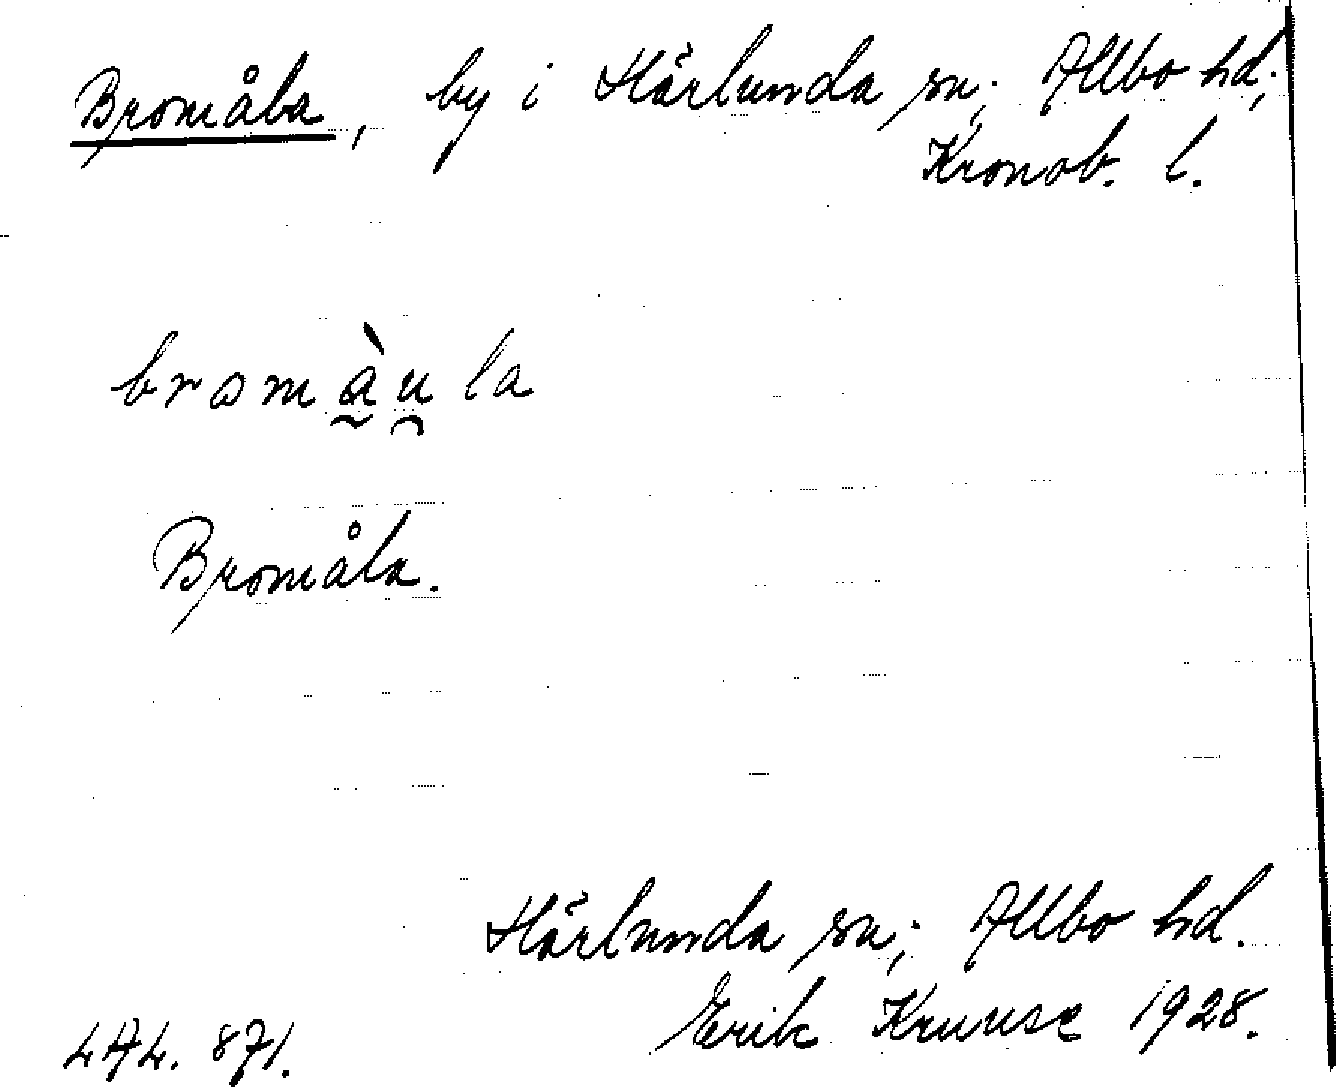 Bromåla, by i Härlunda sn; Allbo hd;
Kronob. l.
bromàu̯la
Bromåla.
Härlunda sn; Allbo hd.
LAL. 871. Erik Kruuse 1928.